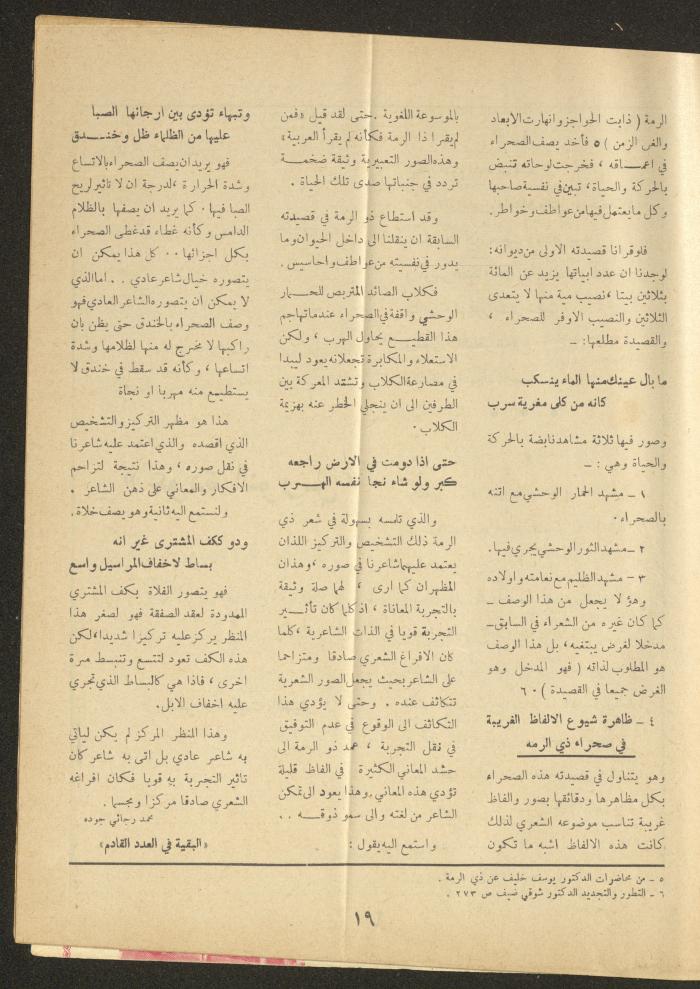 الرمة ( ذابت الحواجز وانهارت الابعاد
والغى الزمن ) ٥ فأخذ يصف الصحراء
في اعمـــاقه ، فخرجت لوحاته تنبض
بالحركة والحياة، تبين في نفسية صاحبها
وكل ما يعتمل فيها من عواطف وخواطر.
فلو قرانا قصيدته الاولى من ديوانه:
لوجدنا ان عدد ابياتها يزيد عن المائة
بثلاثين بيتا ، نصيب مية منها لا يتعدى
الثلاثين والنصيب الاوفر للصحراء ،
والقصيدة مطلعها: ـ
ما بال عينك منها الماء ينسكب
كانه من كلى مفرية سرب
وصور فيها ثلاثة مشاهد نابضة بالحركة
والحياة وهي : ـ
١ ـ مشهد الحمار الوحشي مع اتنه
بالصحراء.
٢ ـ مشهد الثور الوحشي يجري فيها.
٣ ـ مشهد الظليم مع نعامته واولاده
وهو لا يجعل من هذا الوصف ـ
كما كان غيره من الشعراء في السابق ـ
مدخلا لغرض يبتغيه ، بل هذا الوصف
هو المطلوب لذاته ( فهو المدخل وهو
الغرض جميعا في القصيدة ) ٦.
٤ ـ ظاهرة شيوع الالفاظ الغريبة
في صحراء ذي الرمه
وهو يتناول في قصيدته هذه الصحراء
بكل مظاهرها ودقائقها بصور والفاظ
غريبة تناسب موضوعه الشعري لذلك
كانت هذه الالفاظ اشبه ما تكون
بالموسوعة اللغوية . حتى لقد قيل «فمن
لم يقرا ذا الرمة فكأنه لم يقرأ العربية»
وهذه الصور التعبيرية وثيقة ضخمـــة
تردد في جنباتها صدى تلك الحياة .
وقد استطاع ذو الرمة في قصيدته
السابقة ان ينقلنا الى داخل الحيوان وما
يدور في نفسيته من عواطف واحاسيس.
فكلاب الصائد المتربص للحــمار
الوحشي واقفة في الصحراء عندما تهاجم
هذا القطيــع يحاول الهرب ، ولكن
الاستعلاء والمكابرة تجعلانه يعود ليبدا
في مصارعة الكلاب وتشتد المعركة بين
الطرفين الى ان ينجلي الخطر عنه بهزيمة
الكلاب .
حتى اذا دومت في الارض راجعه
كبر ولو شاء نجا نفسه الهـــرب
والذي تلمسه بسهولة في شعر ذي
الرمة ذلك التشخيص والتركيز اللذان
يعتمد عليهما شاعرنا في صوره ، وهذان
المظهران كما ارى ، لهما صلة وثيقة
بالتجربة المعاناة ، اذ كلما كان تأثــير
التجربة قويا في الذات الشاعرية ، كلما
كان الافراغ الشعري صادقا ومتزاحما
على الشاعر بحيث يجعل الصور الشعرية
تتكاثف عنده . وحتى لا يؤدي هذا
التكاثف الى الوقوع في عدم التوفيق
في نقل التجربة ، عمد ذو الرمة الى
حشد المعاني الكثيرة في الفاظ قليلة
تؤدي هذه المعاني. وهذا يعود الى تمكن
الشاعر من لغته والى سمو ذوقــه . .
واستمع اليه يقول :
وتيهاء تؤدى بين ارجائها الصبا
عليها من الظلماء ظل وخنـــدق
فهو يريد ان يصف الصحراء بالاتساع
وشدة الحرارة ، لدرجة ان لا تاثير لريح
الصبا فيها . كما يريد ان يصفها بالظلام
الدامس وكأنه غطاء قد غطى الصحراء
بكل اجزائها . . كل هذا يمكن ان
يتصوره خيال شاعر عادي . . اما الذي
لا يمكن ان يتصوره الشاعر العادي فهو
وصف الصحراء بالخندق حتى يظن بان
راكبها لا مخرج له منها لظلامها وشدة
اتساعها ، وكأنه قد سقط في خندق لا
يستطيــع منه مهربا او نجاة
هذا هو مظهر التركيز والتشخيص
الذي اقصده والذي اعتمد عليه شاعرنا
في نقل صوره ، وهذا نتيجة لتزاحم
الافكار والمعاني على ذهن الشاعر .
ولنستمع اليه ثانية وهو يصف خلاة.
ودو ككف المشترى غير انه
بساط لاخفاف المراسيل واسع
فهو يتصور الفلاة بكف المشتري
الممدودة لعقد الصفقة فهو لصغر هذا
المنظر يركز عليه تركيزا شديدا ، لكن
هذه الكف تعود لتتسع وتنبسط مرة
اخرى ، فاذا هي كالبساط الذي تجري
عليه اخفاف الابل.
وهذا المنظر المركز لم يكن لياتي
به شاعر عادي بل اتى به شاعر كان
تاثير التجربة به قويا فكان افراغه
الشعري صادقا مركزا ومجسما .
محمد رجائي جوده
«البقية في العدد القادم»
٥ ـ من محاضرات الدكتور يوسف خليف عن ذي الرمة .
٦ ـ التطور والتجديد الدكتور شوقي ضيف ص ٢٧٣ .
١٩